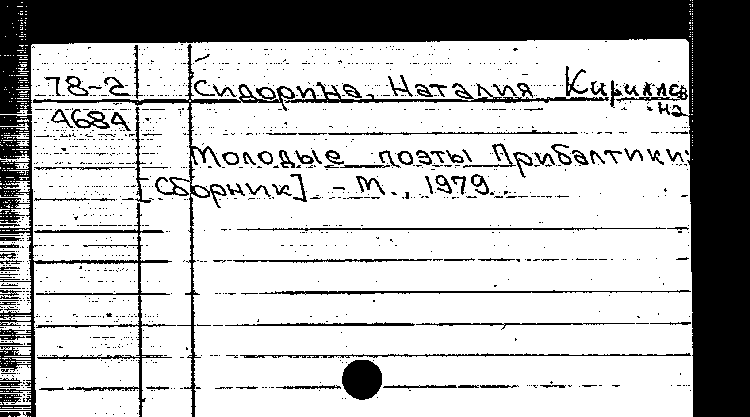 78-2 Сидорина, Наталия Кириллов
4684 на
Молодые поэты Прибалтики:
[Сборник] - М., 1979.